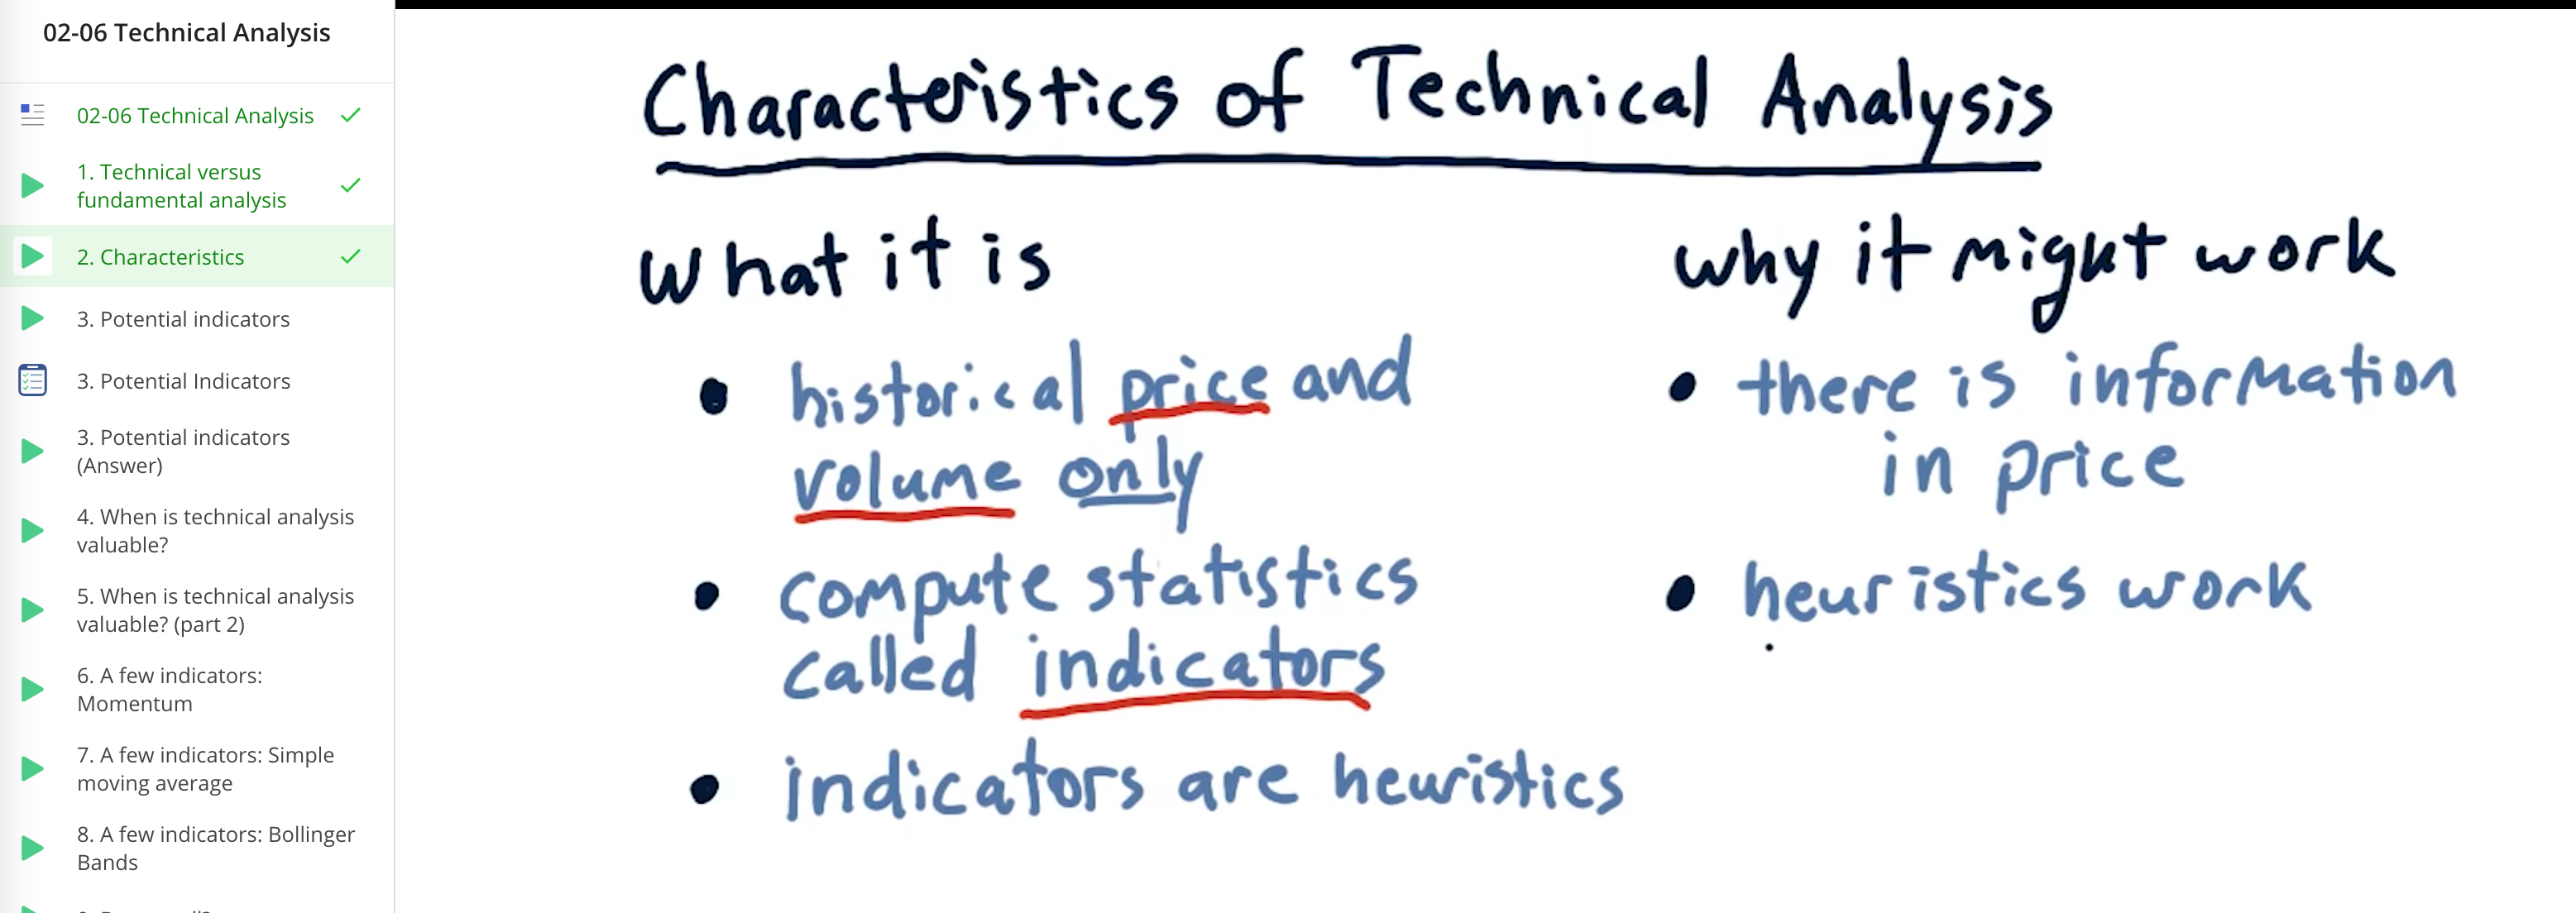 02-06 Technical Analysis
02-06 Technical Analysis
1. Technical versus
fundamental analysis
2. Characteristics
3. Potential indicators
3. Potential Indicators
3. Potential indicators
(Answer)
4. When is technical analysis
valuable?
5. When is technical analysis
valuable? (part 2)
6. A few indicators:
Momentum
7. A few indicators: Simple
moving average
8. A few indicators: Bollinger
Bands
Characteristics of Technical Analysis
what it is
historical price and
volume only
compute statistics
called indicators
indicators are heuristics
why it might work
there is information
in price
heuristics work